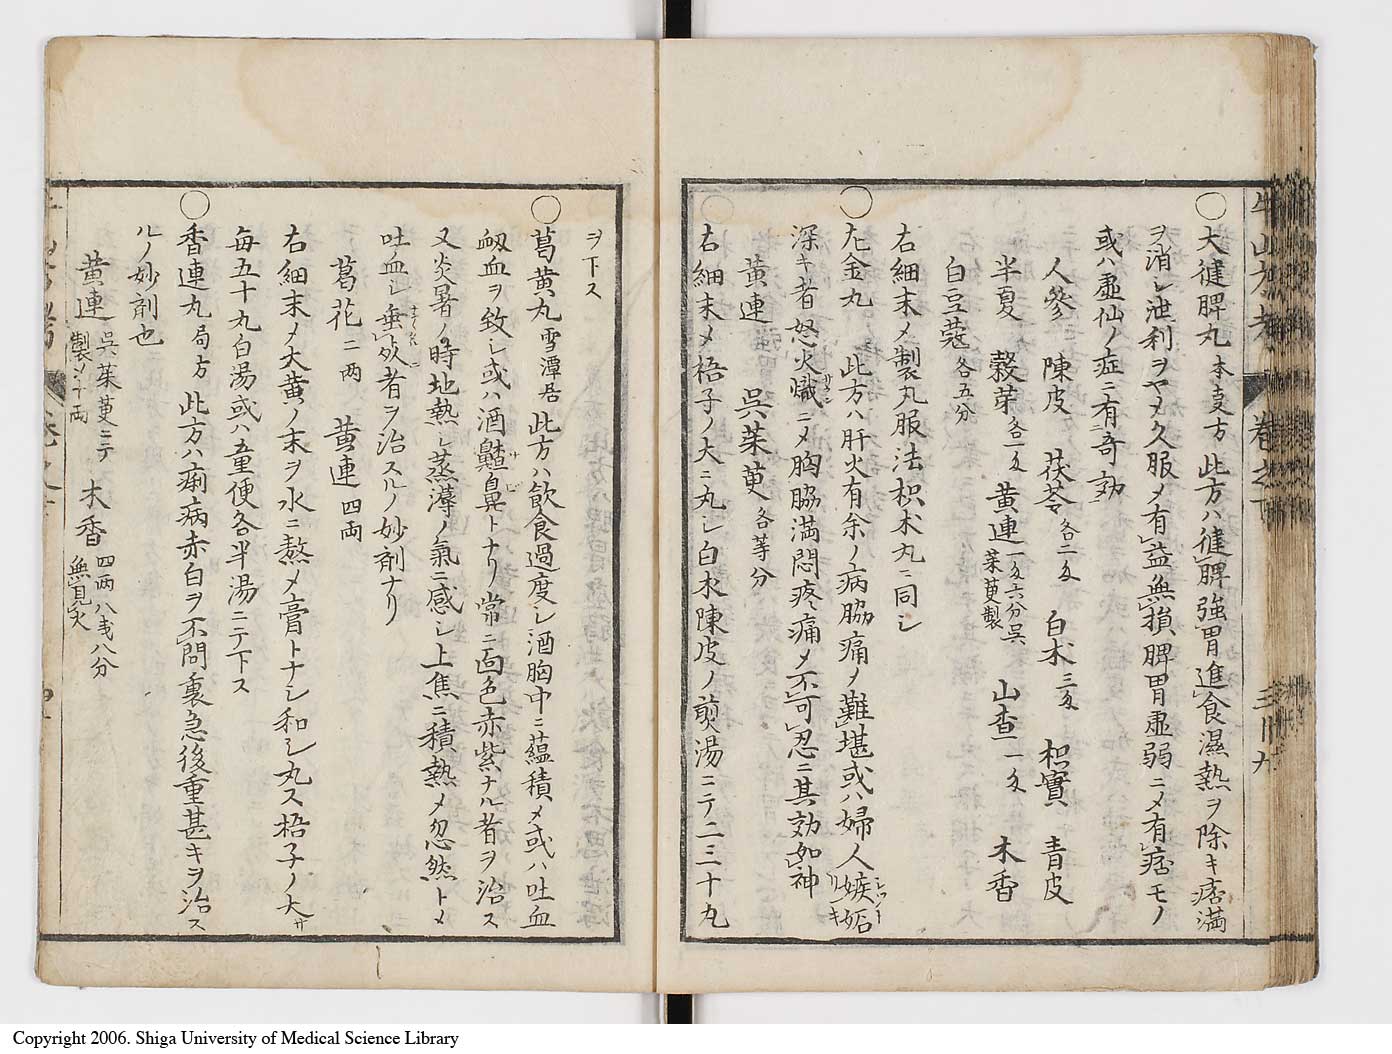 ○大健脾丸 本支方 此方ハ健脾強胃進食濕熱ヲ除キ痞満
ヲ消シ泄利ヲヤメ久服メ有益無損脾胃虚弱ニメ有痞モノ
或ハ虚仙ノ症ニ有奇効
人參 陳皮 茯苓 各二匁 白朮 三匁 枳實 青皮
半夏 穀芽 各一匁 黄連 一匁六分呉茱萸製 山査 一匁 木香
白豆蔲 各五分
右細末メ製丸服法枳朮丸ニ同シ
○左金丸 此方ハ肝火有余ノ病脇痛ノ難堪或ハ婦人嫉妬
深キ者怒火熾ニメ胸脇満悶疼痛メ不可忍ニ其効如神
黄連 呉茱萸 各等分
右細末メ梧子ノ大ニ丸シ白朮陳皮ノ煎湯ニテ二三十丸
ヲ下ス
○葛黄丸 雪潭居 此方ハ飲食過度シ酒胸中ニ蘊積メ或ハ吐血
衂血ヲ致シ或ハ酒齇鼻トナリ常ニ面色赤紫ナル者ヲ治ス
又炎暑ノ時地熱シ蒸薄ノ氣ニ感シ上焦ニ積熱メ忽然トメ
吐血シ垂死者ヲ治スルノ妙剤ナリ
葛花 二両 黄連 四両
右細末メ大黄ノ末ヲ水ニ熬メ膏トナシ和シ丸ス梧子ノ大サ
毎五十丸白湯或ハ童便各半湯ニテ下ス
○香連丸 局方 此方ハ痢病赤白ヲ不問裏急後重甚キヲ治ス
ルノ妙剤也
黄連 呉茱萸ニテ製メ十両 木香 四両八戔八分無見火
Copyright 2006. Shiga University of Medical Science Library